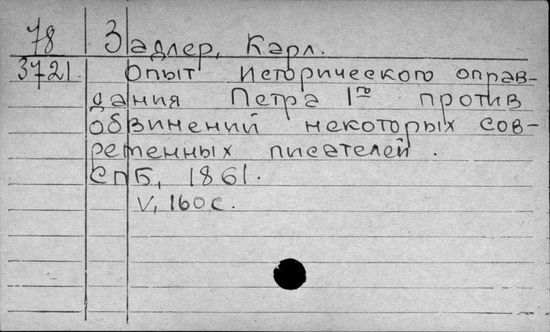 78 Задлер, Карл.
3721. Опыт исторического оправ-
дания Петра Iго против
обвинений некоторых сов-
ременных писателей.
СПБ, 1861.
V, 160 с.